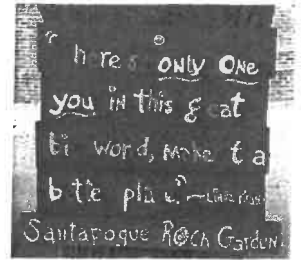 here's only one
you in this g eat
bi word, make t a
bette pla
Santapogue Rock Garden